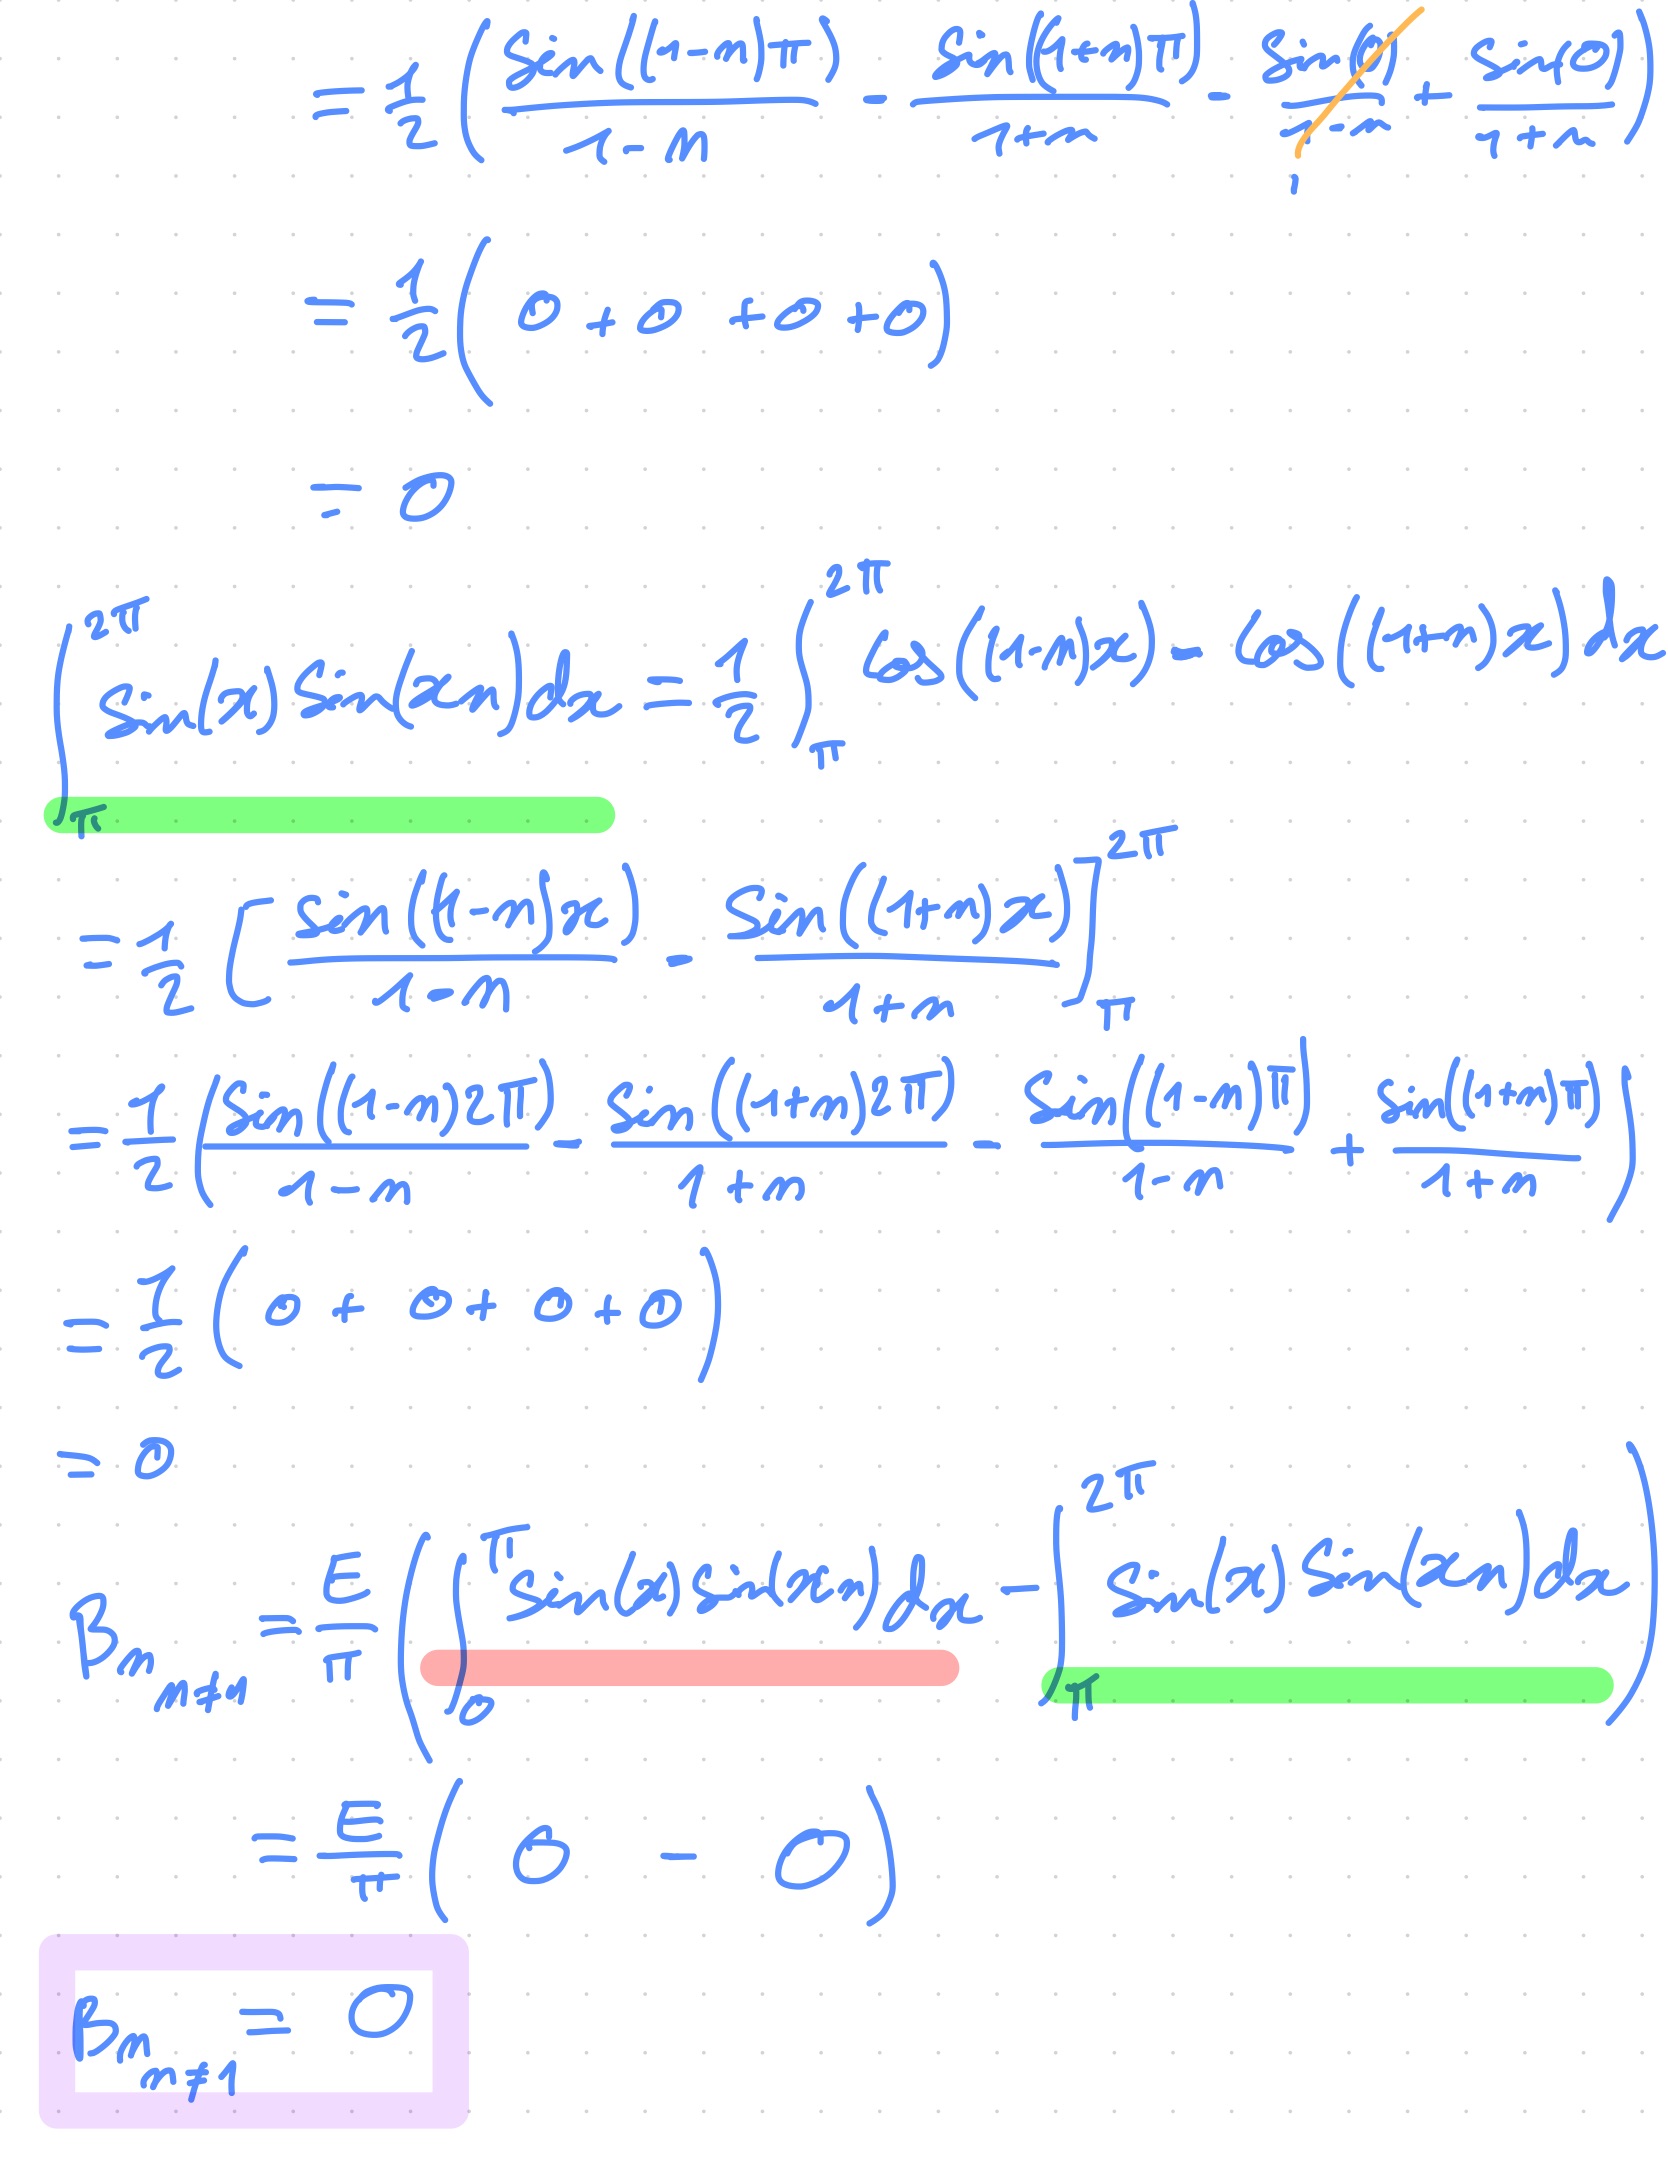 = 1/2 ( sin((1-n)π)/(1-n) - sin((1+n)π)/(1+n) - sin(0)/(1-n) + sin(0)/(1+n) )
= 1/2 ( 0 + 0 + 0 + 0 )
= 0
∫_π^{2π} sin(x) sin(xn) dx = 1/2 ∫_π^{2π} cos((1-n)x) - cos((1+n)x) dx
= 1/2 [ sin((1-n)x)/(1-n) - sin((1+n)x)/(1+n) ]_π^{2π}
= 1/2 ( sin((1-n)2π)/(1-n) - sin((1+n)2π)/(1+n) - sin((1-n)π)/(1-n) + sin((1+n)π)/(1+n) )
= 1/2 ( 0 + 0 + 0 + 0 )
= 0
B_{n n≠1} = E/π ( ∫_0^π sin(x) sin(xn) dx - ∫_π^{2π} sin(x) sin(xn) dx )
= E/π ( 0 - 0 )
B_{n n≠1} = 0